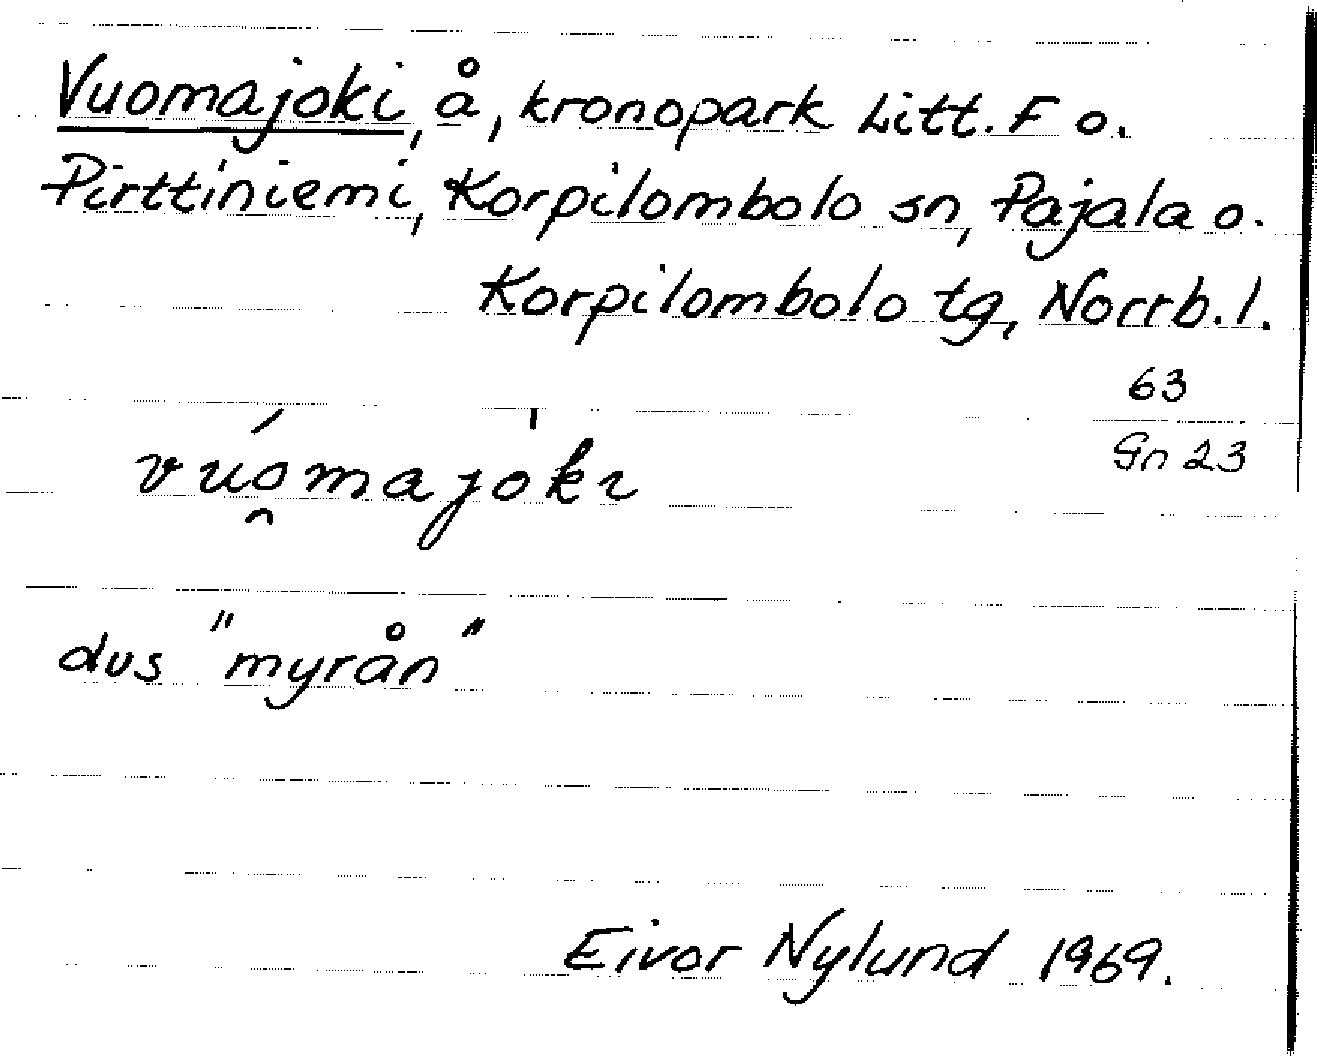 Vuomajoki, å, kronopark Litt. F o.
Pirttiniemi, Korpilombolo sn, Pajala o.
Korpilombolo tg, Norrb. l.
63
Gn 23
vuo̯majokɩ
dvs "myrån"
Eivor Nylund 1969.